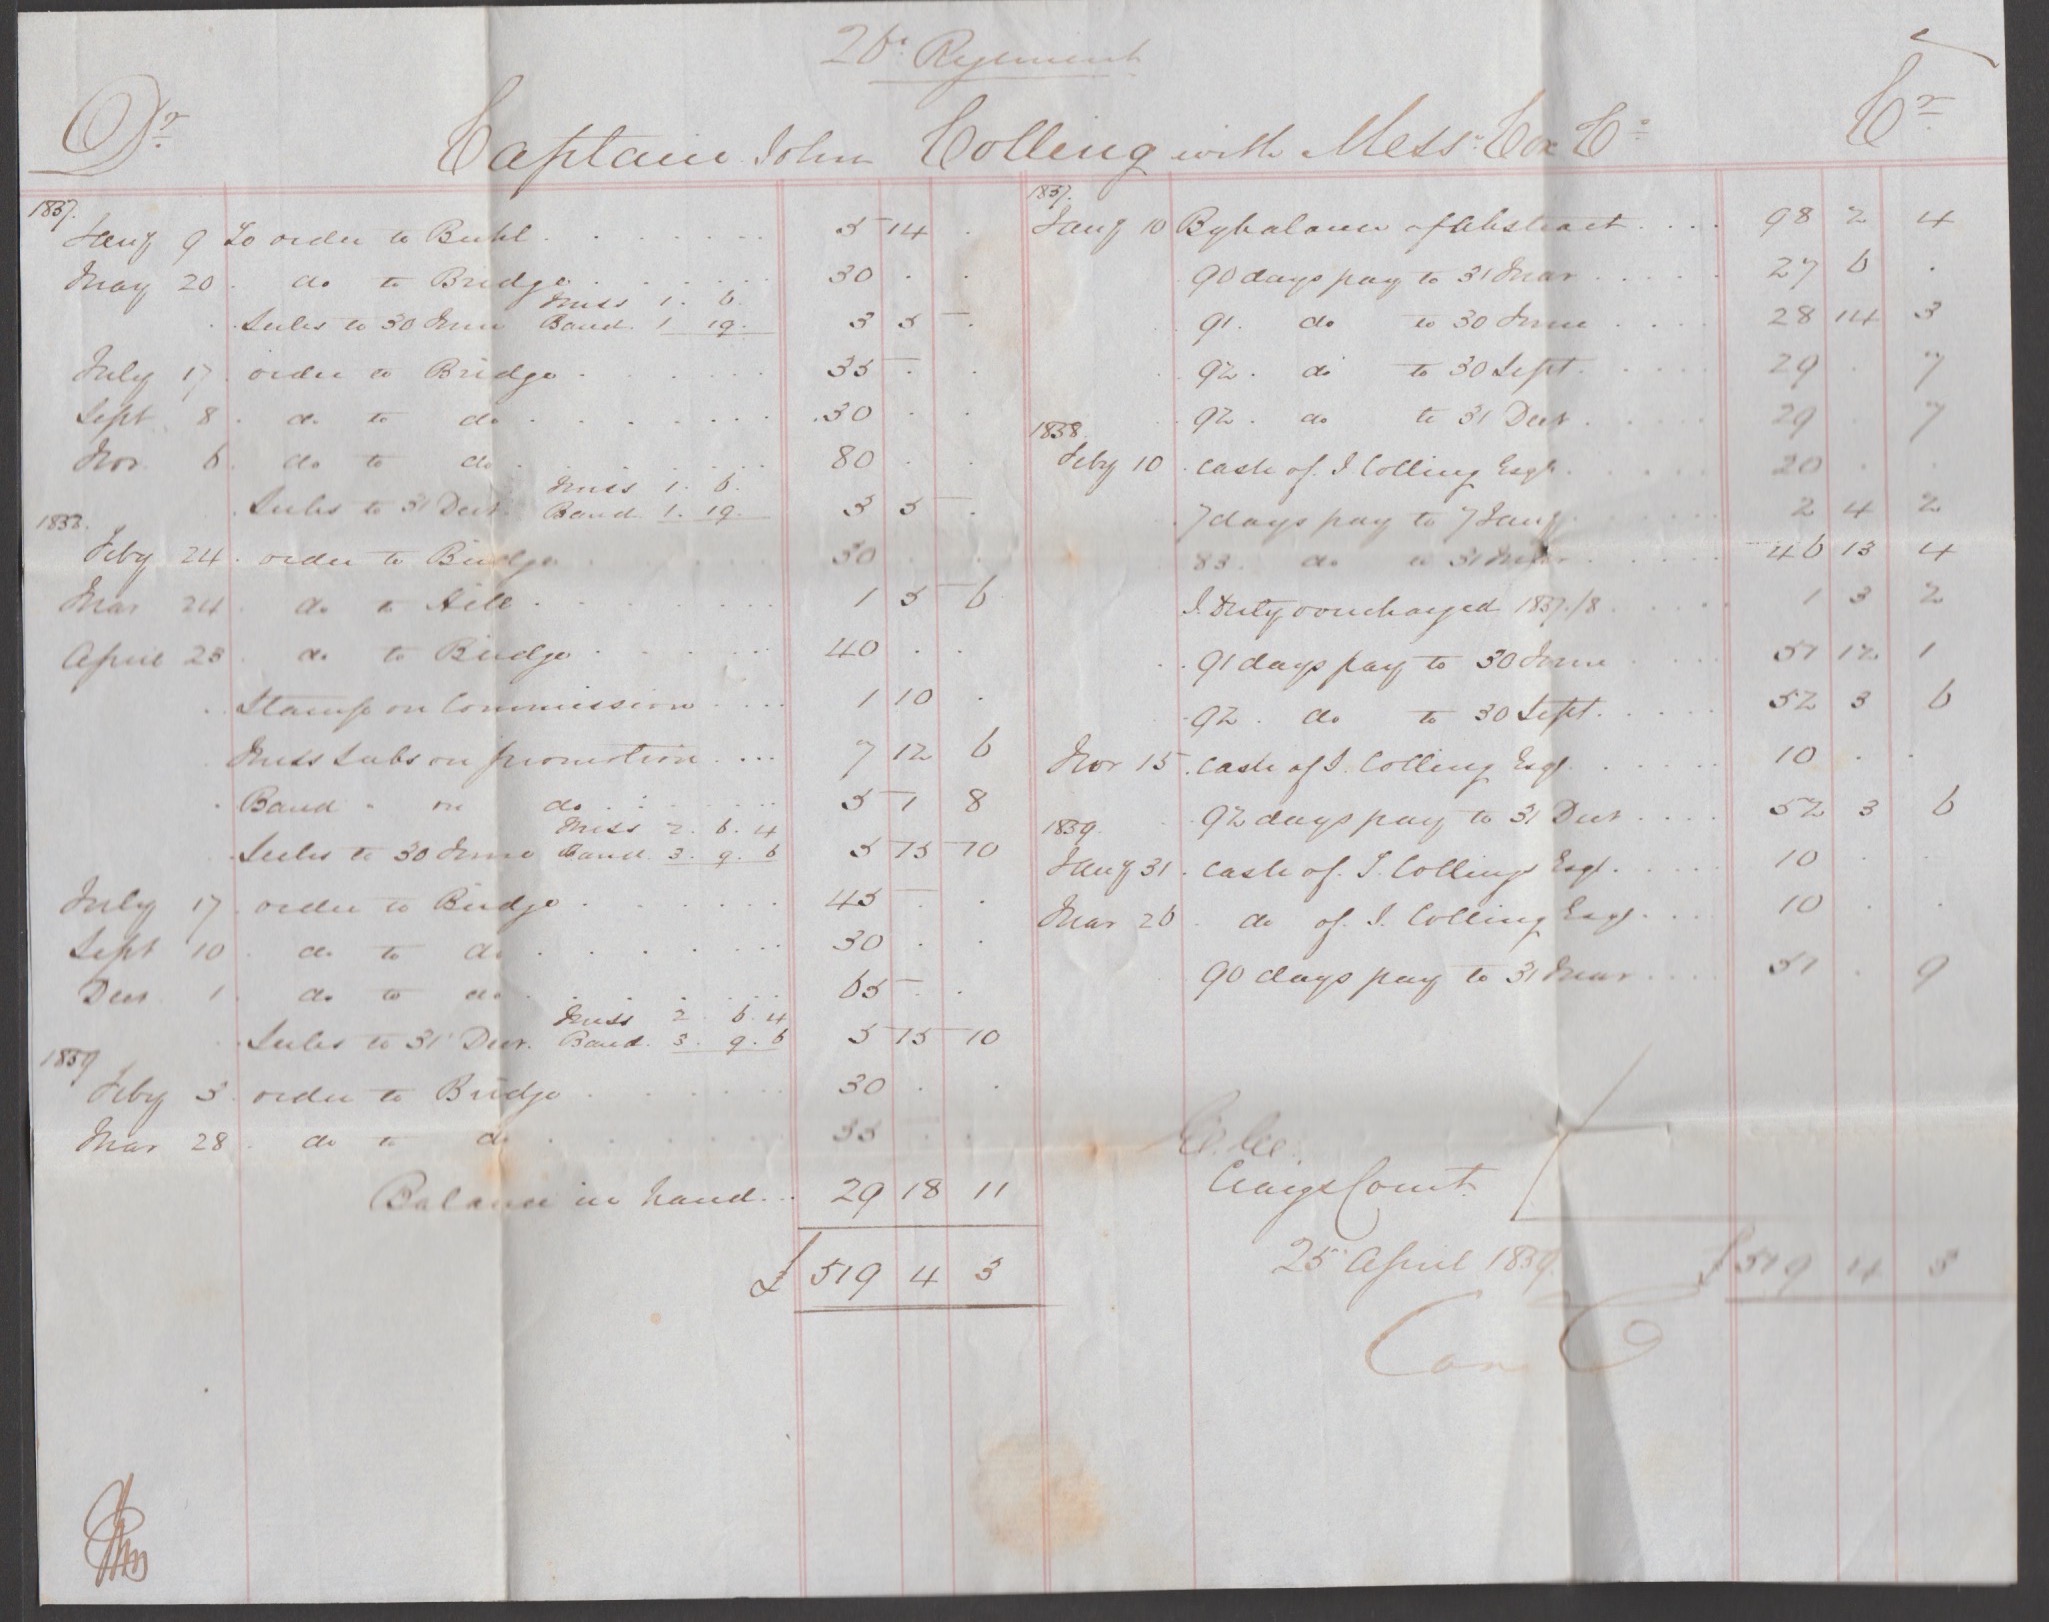 26th Regiment
Dr Captain John Colling with Messrs Cox & Co Cr
1837.
Jany 9 To order to Buhl . . . 5 14 .
May 20 . do to Bridge . . . 30 . .
Mess 1. 6.
. Subs to 30 June Band 1 19. 3 5 .
July 17 . order to Bridge . . . 35 . .
Sept 8 . do to do . . . 30 . .
Nov 6 . do to do . . . 80 . .
Mess 1. 6.
. Subs to 31 Decr Band 1. 19. 3 5 .
1838.
Feby 24 . order to Bridge . . . 30 . .
Mar 24 . do to Hill . . . 1 5 6
April 23 . do to Bridge . . . 40 . .
. Stamp on Commission . . . 1 10 .
Mess Subs on promotion . . . 7 12 6
. Band " on do . . . 5 1 8
Mess 2. 6. 4
. Subs to 30 June Band 3. 9. 6 5 15 10
July 17 . order to Bridge . . . 45 . .
Sept 10 . do to do . . . 30 . .
Decr 1 . do to do . . . 65 . .
Mess 2. 6. 4
. Subs to 31 Decr. Band 3. 9. 6 5 15 10
1839
Feby 5 . order to Bridge . . . 30 . .
Mar 28 . do to do . . . 35 . .
Balance in hand . . . 29 18 11
£ 519 4 3
1837.
Jany 10 By balance of Abstract . . . 98 2 4
90 days pay to 31 Mar . . . 27 6 .
. 91. do to 30 June . . . 28 14 3
. 92. do to 30 Sept . . . 29 . 7
. 92. do to 31 Decr . . . 29 . 7
1838
Feby 10 . Cash of J Colling Esqr . . . 20 . .
. 7 days pay to 7 Jany . . . 2 4 2
83. do to 31 Mar . . . 46 13 4
J. Duty overcharged 1837/8 . . . 1 3 2
. 91 days pay to 30 June . . . 51 12 1
. 92. do to 30 Sept . . . 52 3 6
Nov 15 . Cash of J. Colling Esqr . . . 10 . .
. 92 days pay to 31 Decr . . . 52 3 6
1839.
Jany 31 . Cash of J. Colling Esqr . . . 10 . .
Mar 26 . do of J. Colling Esqr . . . 10 . .
. 90 days pay to 31 Mar . . . 51 . 9
E. Ee.
Craigs Court
25 April 1839.
£ 519 4 3
Cox & Co